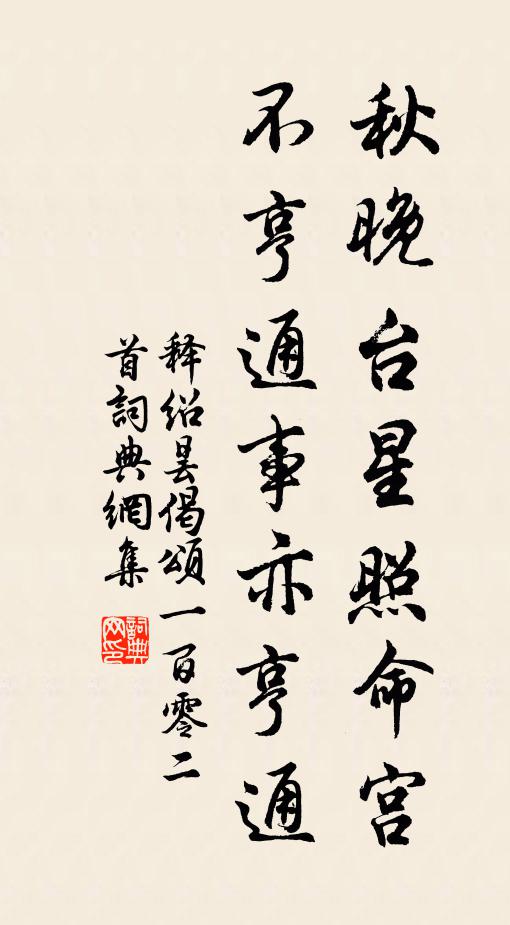 秋晚台星照命宫
不亨通事亦亨通
释绍昙偈颂一百零二
首詞典網集
詞典网印